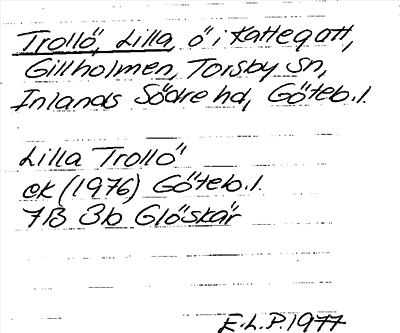 Trollö, Lilla, ö i Kattegatt,
Gillholmen, Torsby sn,
Inlands Södre hd, Göteb. l.
Lilla Trollö
ek (1976) Göteb. l.
7B 3b Glöskär
E.L.P. 1977